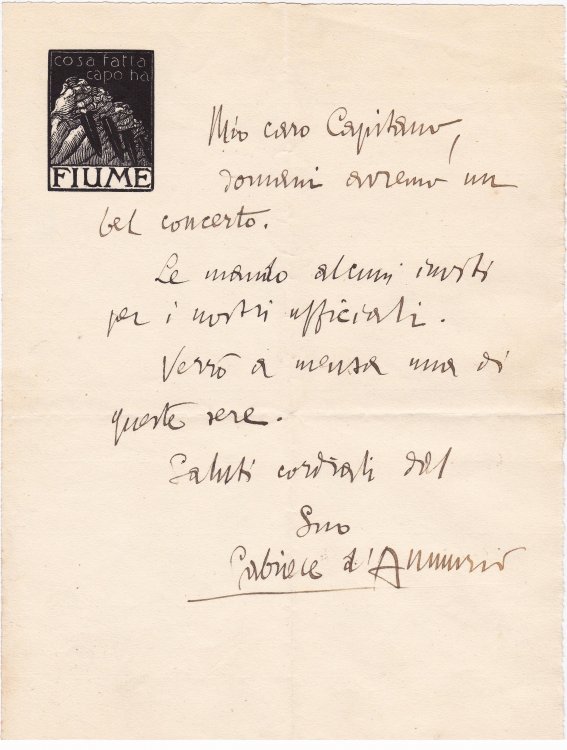 cosa fatta
capo ha
FIUME
Mio caro Capitano,
domani avremo un
bel concerto.
Le mando alcuni inviti
per i nostri ufficiali.
Verrò a mensa una di
queste sere.
Saluti cordiali dal
Suo
Gabriele d'Annunzio